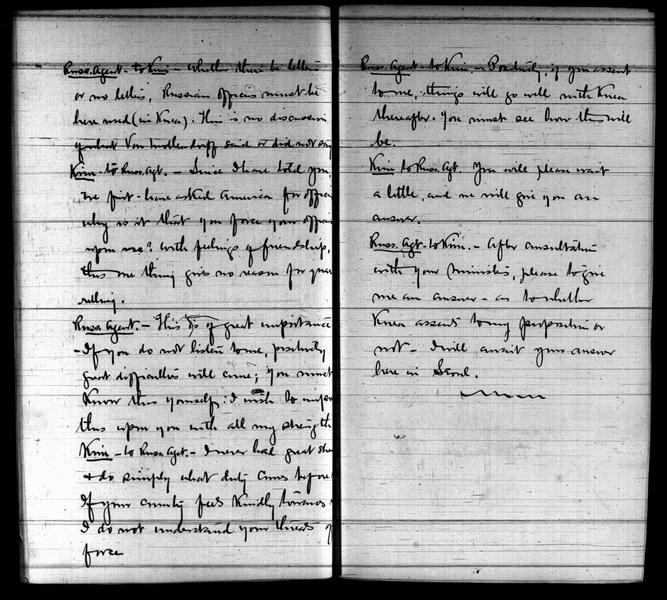 Russ. Agent - to Kim - Whether there be letters
or no letters, Russian officers must be
here used (in Korea). This is no discussion
what Von Mollendorff said or did not say
Kim - to Russ. Agt. - Since I have told you
we first have asked America for officers
why is it that you force your officers
upon me? With feelings of friendship,
this one thing gives no reason for quar
relling.
Russ. Agent. - This is of great importance
- If you do not listen to me, positively
great difficulties will come; you must
know this yourself: I wish to impress
this upon you with all my strength
Kim - to Russ. Agt. - I never had great
& do simply what duty comes before
If your country feels kindly towards
I do not understand your threats of
force
Russ. Agent - to Kim. - Positively, if you assent
to me, things will go well with Korea
thereafter. You must see how this will
be.
Kim to Russ. Agt. You will please wait
a little, and we will give you an
answer.
Russ. Agt - to Kim. - After consultation
with your ministers, please to give
me an answer - as to whether
Korea assents to my proposition or
not - I will await your answer
here in Seoul.